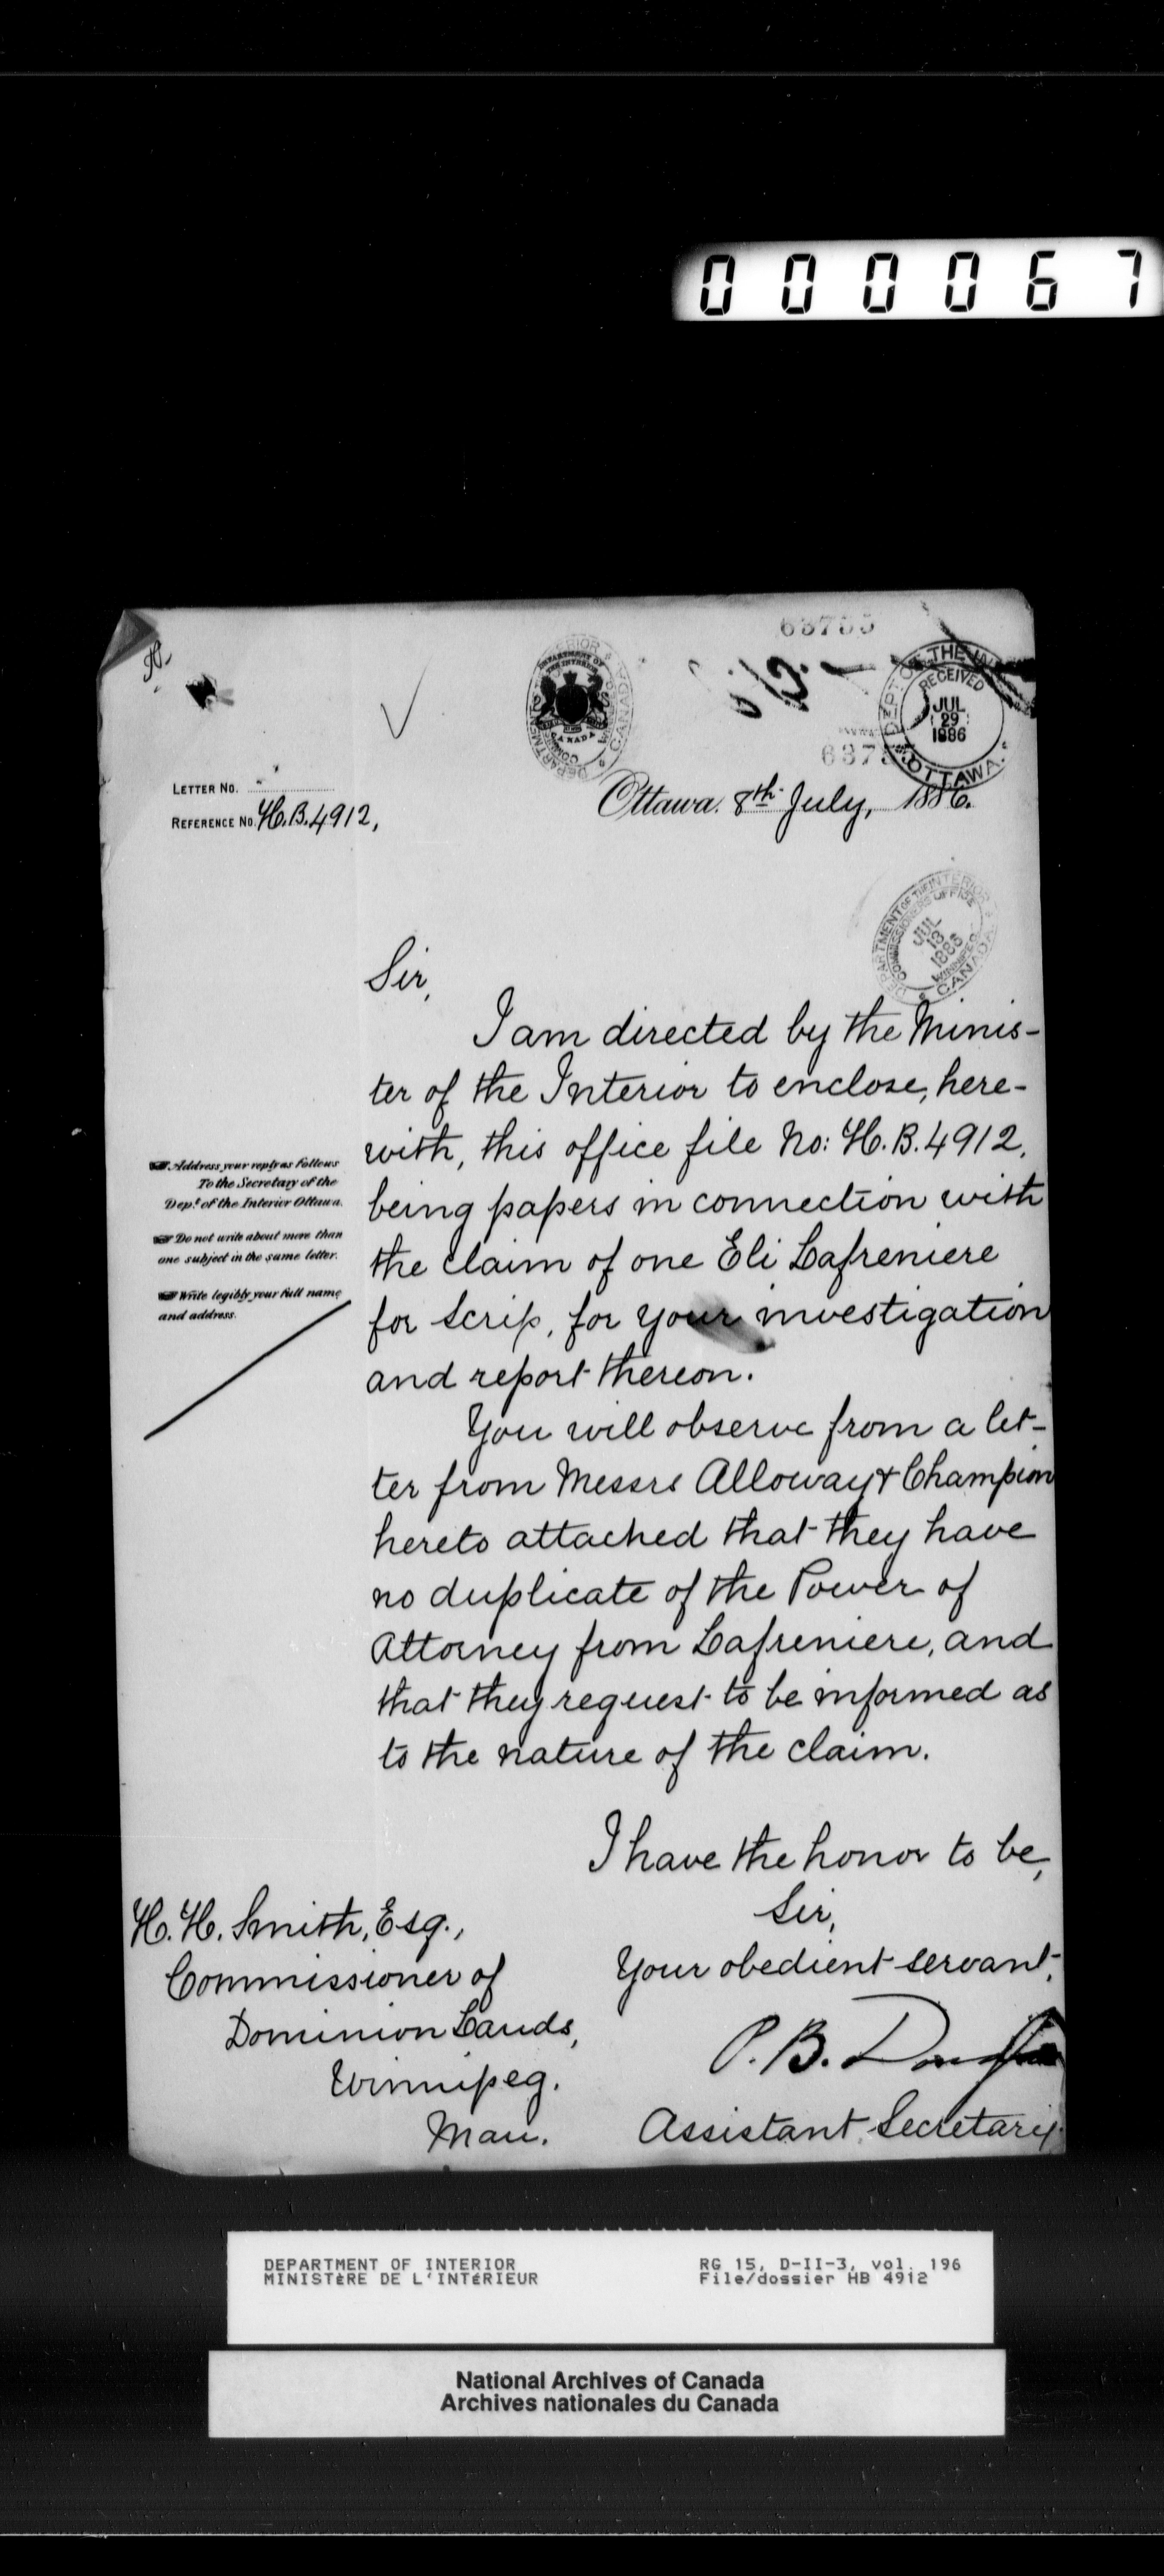 000067
63755
DEPT. OF THE
RECEIVED
JUL
29
1886
OTTAWA.
DEPARTMENT OF
THE INTERIOR
CANADA
LETTER No.
REFERENCE No. H.B. 4912,
Ottawa. 8th July, 1886.
DEPARTMENT OF THE INTERIOR
COMMISSIONERS OFFICE
JUL
13
1886
WINNIPEG
CANADA
Sir,
I am directed by the Minis-
ter of the Interior to enclose, here-
with, this office file No: H.B. 4912,
being papers in connection with
the claim of one Eli Lafreniere
for Scrip, for your investigation
and report thereon.
You will observe from a let-
ter from Messrs Alloway & Champion
hereto attached that they have
no duplicate of the Power of
Attorney from Lafreniere, and
that they request to be informed as
to the nature of the claim.
I have the honor to be,
Sir,
Your obedient servant,
P. B.
Assistant Secretary.
Address your reply as follows
To the Secretary of the
Dept. of the Interior Ottawa.
Do not write about more than
one subject in the same letter.
Write legibly your full name
and address.
H. H. Smith, Esq.,
Commissioner of
Dominion Lands,
Winnipeg.
Man.
DEPARTMENT OF INTERIOR
MINISTÈRE DE L'INTÉRIEUR
RG 15, D-II-3, vol. 196
File/dossier HB 4912
National Archives of Canada
Archives nationales du Canada